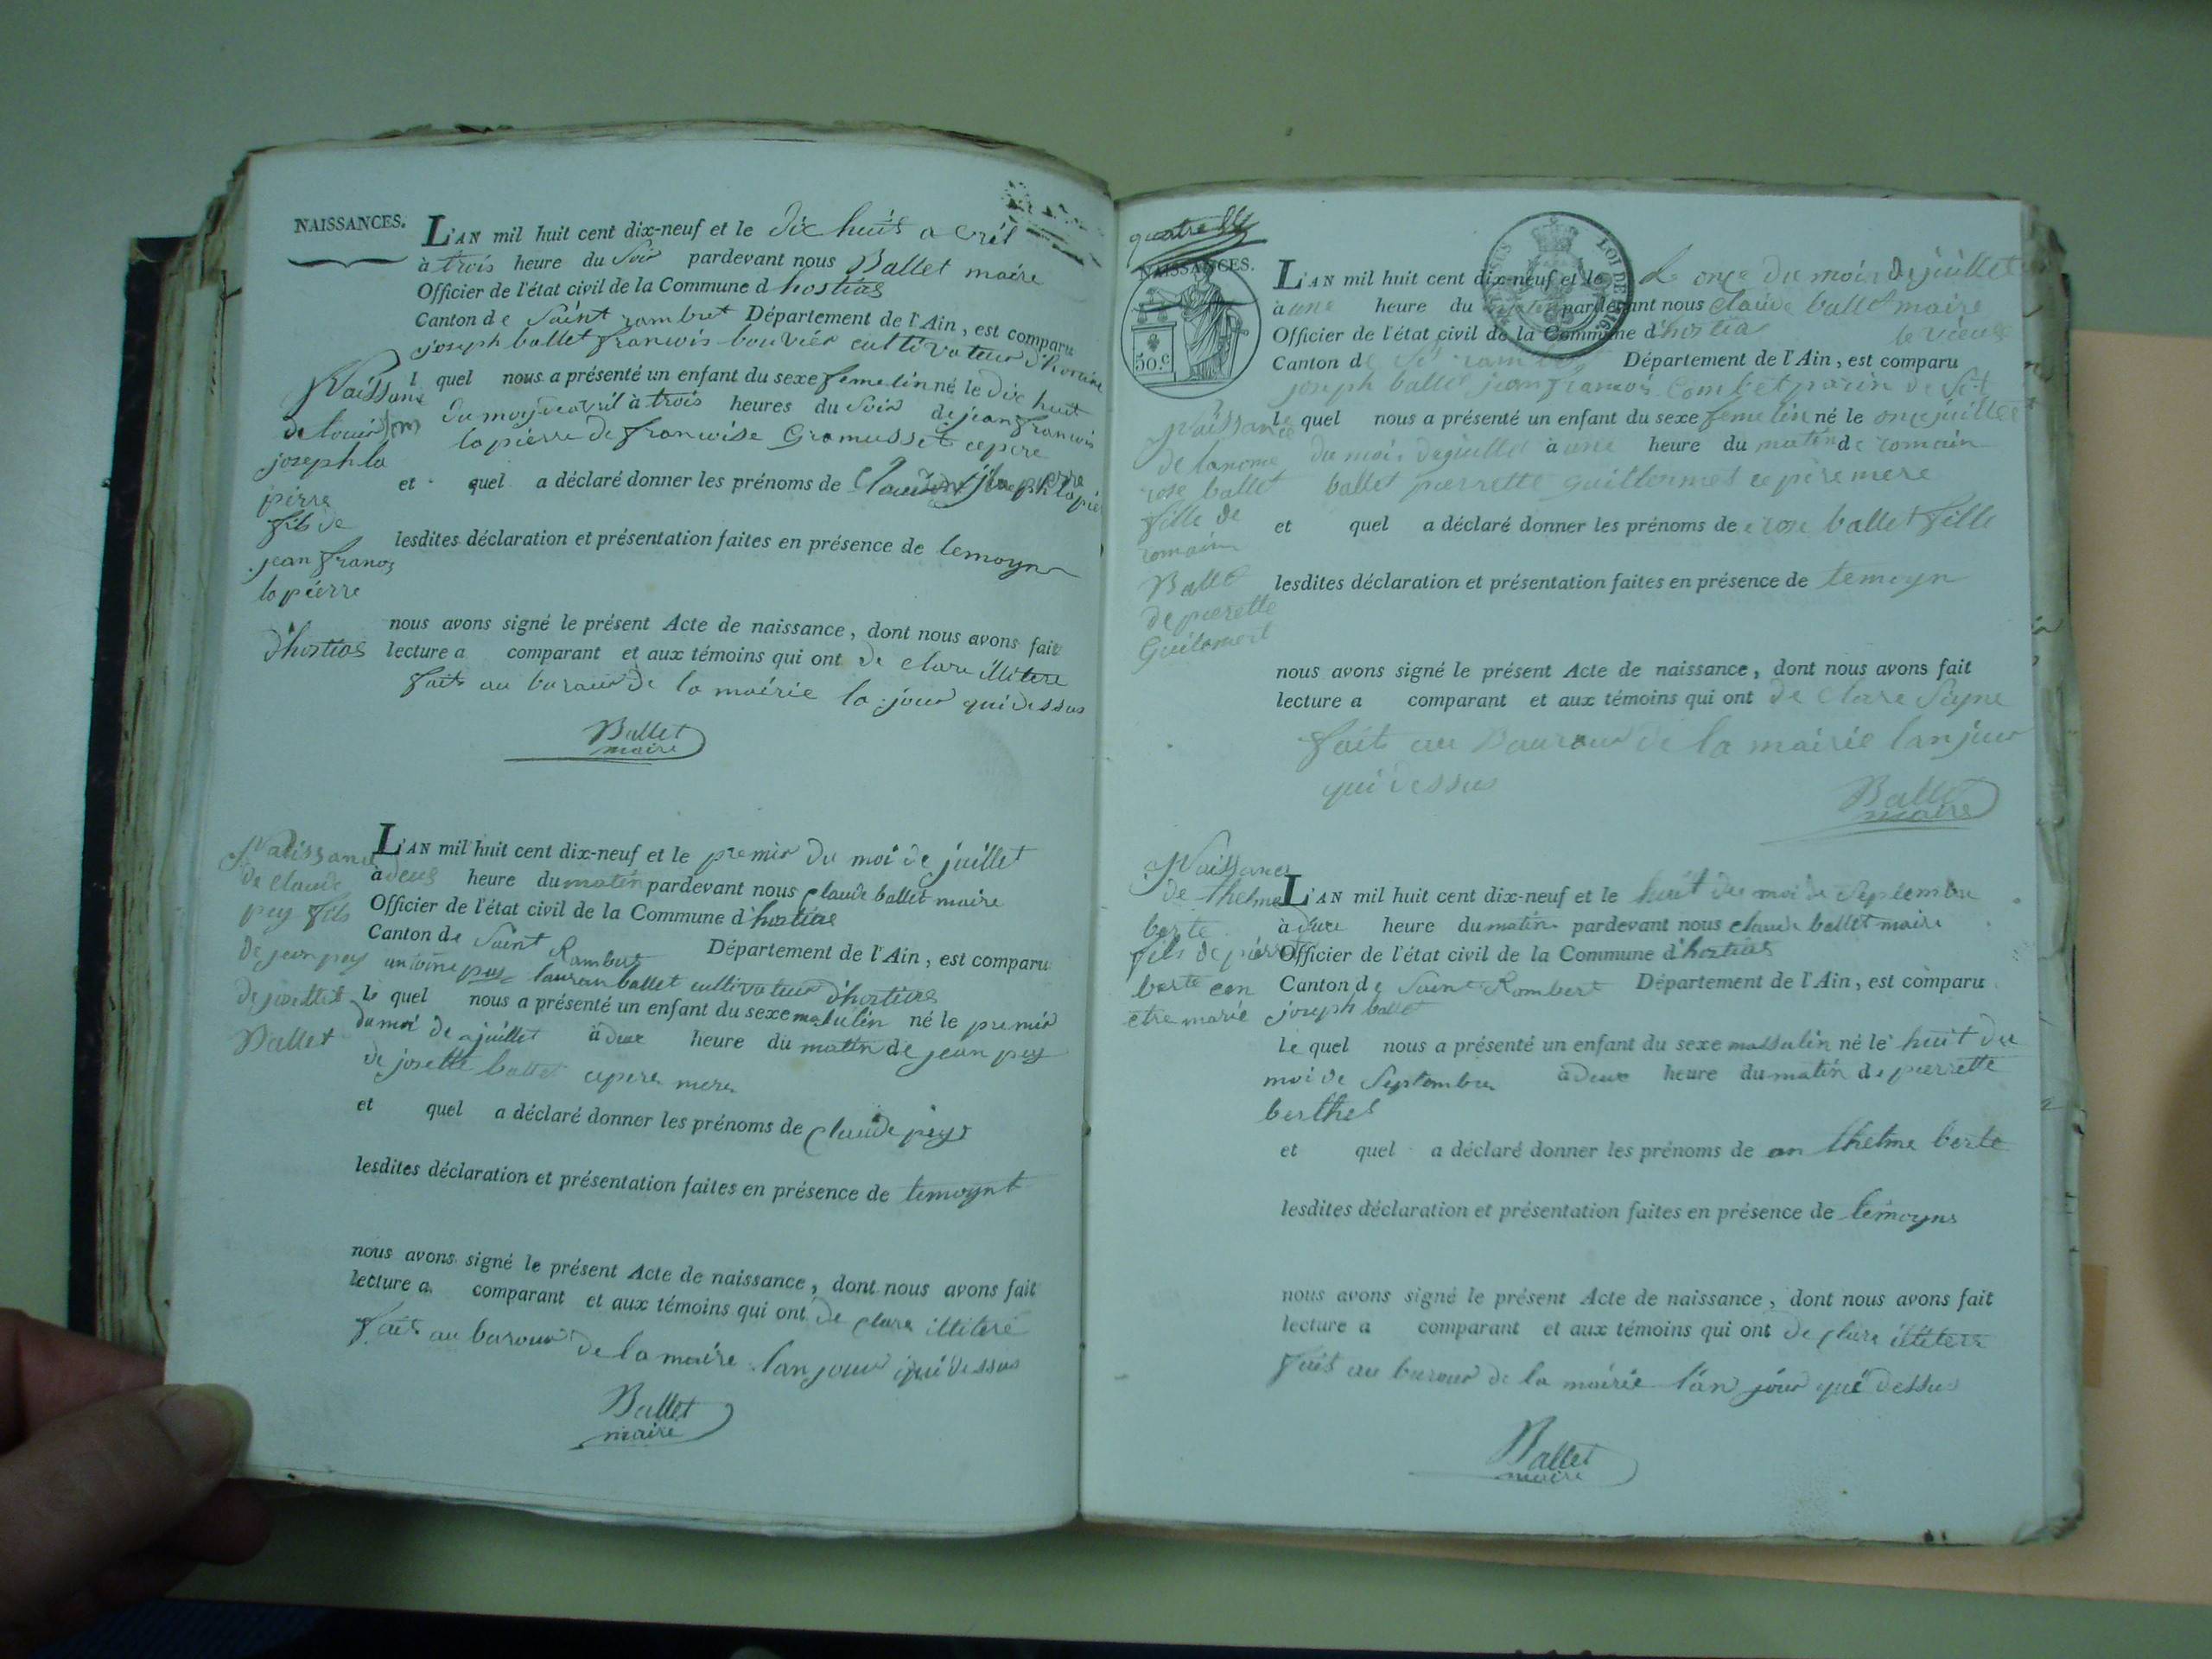 NAISSANCES.
L'AN mil huit cent dix-neuf et le dix huit avril
à trois heure du Soir pardevant nous Ballet maire
Officier de l'état civil de la Commune d hostias
Canton de Saint rambert Département de l'Ain, est comparu
joseph ballet francois bouvier cultivateur d'hostias
l quel nous a présenté un enfant du sexe femelin né le dix huit
du moy de avril à trois heures du Soir de jean francois
lapierre de francoise Gramusset ce pere
et quel a déclaré donner les prénoms de joseph lapierre
lesdites déclaration et présentation faites en présence de temoyn
nous avons signé le présent Acte de naissance, dont nous avons fait
lecture a comparant et aux témoins qui ont de clare illitere
fait au buraud de la mairie la jour qui dessus
Ballet
maire
Naissance
de louis
joseph la
pierre
fils de
jean franos
la pierre
d'hostias
L'AN mil huit cent dix-neuf et le premir du moi de juillet
à deus heure du matin pardevant nous claude ballet maire
Officier de l'état civil de la Commune d'hostias
Canton de Saint Rambert Département de l'Ain, est comparu
antoine pey lauran ballet cultivateur d'hostias
le quel nous a présenté un enfant du sexe masculin né le premir
du moi de juillet à deux heure du matin de jean pey
de josette ballet ce pere mere
et quel a déclaré donner les prénoms de claude pey
lesdites déclaration et présentation faites en présence de temoynt
nous avons signé le présent Acte de naissance, dont nous avons fait
lecture a comparant et aux témoins qui ont de clare illiteré
fait au buraud de la maire lan jour qui dessus
Ballet
maire
Naissance
de claude
pey fils
de jean pey
de josettet
Ballet
quatre
NAISSANCES.
50.c
LOI DE 1816.
L'AN mil huit cent dix-neuf et le Le onze du mois de juillet
à une heure du matin pardevant nous claude ballet maire
Officier de l'état civil de la Commune d'hostias le vieux
Canton de St ramber Département de l'Ain, est comparu
joseph ballet jean francois Combet
le quel nous a présenté un enfant du sexe femelin né le onze juillet
du mois de juillet à une heure du matin de romain
ballet pierrette guillermet ce pere mere
et quel a déclaré donner les prénoms de rose ballet fille
lesdites déclaration et présentation faites en présence de temoyn
nous avons signé le présent Acte de naissance, dont nous avons fait
lecture a comparant et aux témoins qui ont de clare Signe
fait au Bauraud de la mairie lan jour
qui dessus
Ballet
maire
Naissance
rose ballet
fille de
romain
Ballet
de pierette
L'AN mil huit cent dix-neuf et le huit du moi de Septembre
à deux heure du matin pardevant nous claude ballet maire
Officier de l'état civil de la Commune d'hostias
Canton de Saint Rombert Département de l'Ain, est comparu
joseph ballet
le quel nous a présenté un enfant du sexe massulin né le huit du
moi de Septembre à deux heure du matin de pierrette
berthet
et quel a déclaré donner les prénoms de an thelme berte
lesdites déclaration et présentation faites en présence de temoyns
nous avons signé le présent Acte de naissance, dont nous avons fait
lecture a comparant et aux témoins qui ont de clare illitere
fait au buraud de la mairie l'an jour qui dessus
Ballet
maire
Naissance
de thelme
berte
fils de pierrette
berte can
etre marié